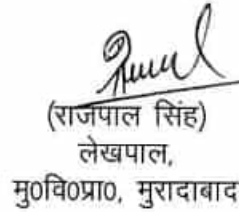 (राजपाल सिंह)
लेखपाल,
मु0वि0प्रा0, मुरादाबाद